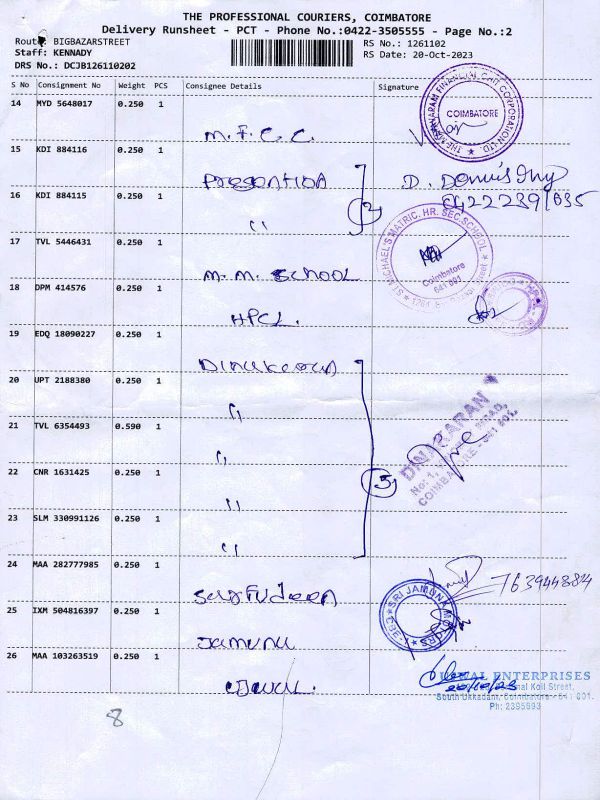 THE PROFESSIONAL COURIERS, COIMBATORE
Delivery Runsheet - PCT - Phone No.:0422-3505555 - Page No.:2
Route: BIGBAZARSTREET
Staff: KENNADY
DRS No.: DCJB126110202
RS No.: 1261102
RS Date: 20-Oct-2023
S No Consignment No Weight PCS Consignee Details Signature
14 MYD 5648017 0.250 1
M.F.C.C.
COIMBATORE
15 KDI 884116 0.250 1
D.
04222391635
16 KDI 884115 0.250 1
"
2
17 TVL 5446431 0.250 1
M.M. SCHOOL
ST.MICHAEL'S MATRIC. HR. SEC. SCHOOL
Coimbatore
641 001
18 DPM 414576 0.250 1
HPCL.
19 EDQ 18090227 0.250 1
20 UPT 2188380 0.250 1
"
21 TVL 6354493 0.590 1
"
DINAKARAN
No: 1,
COIMBATORE - 641 001.
22 CNR 1631425 0.250 1
"
5
23 SLM 330991126 0.250 1
"
24 MAA 282777985 0.250 1
25 IXM 504816397 0.250 1
Jamunu
SRI JAMUNA MOTORS
CBE
26 MAA 103263519 0.250 1
ENTERPRISES
20/10/23
Koil Street,
South Ukkadam, Coimbatore - 641 001.
Ph: 2395693
8